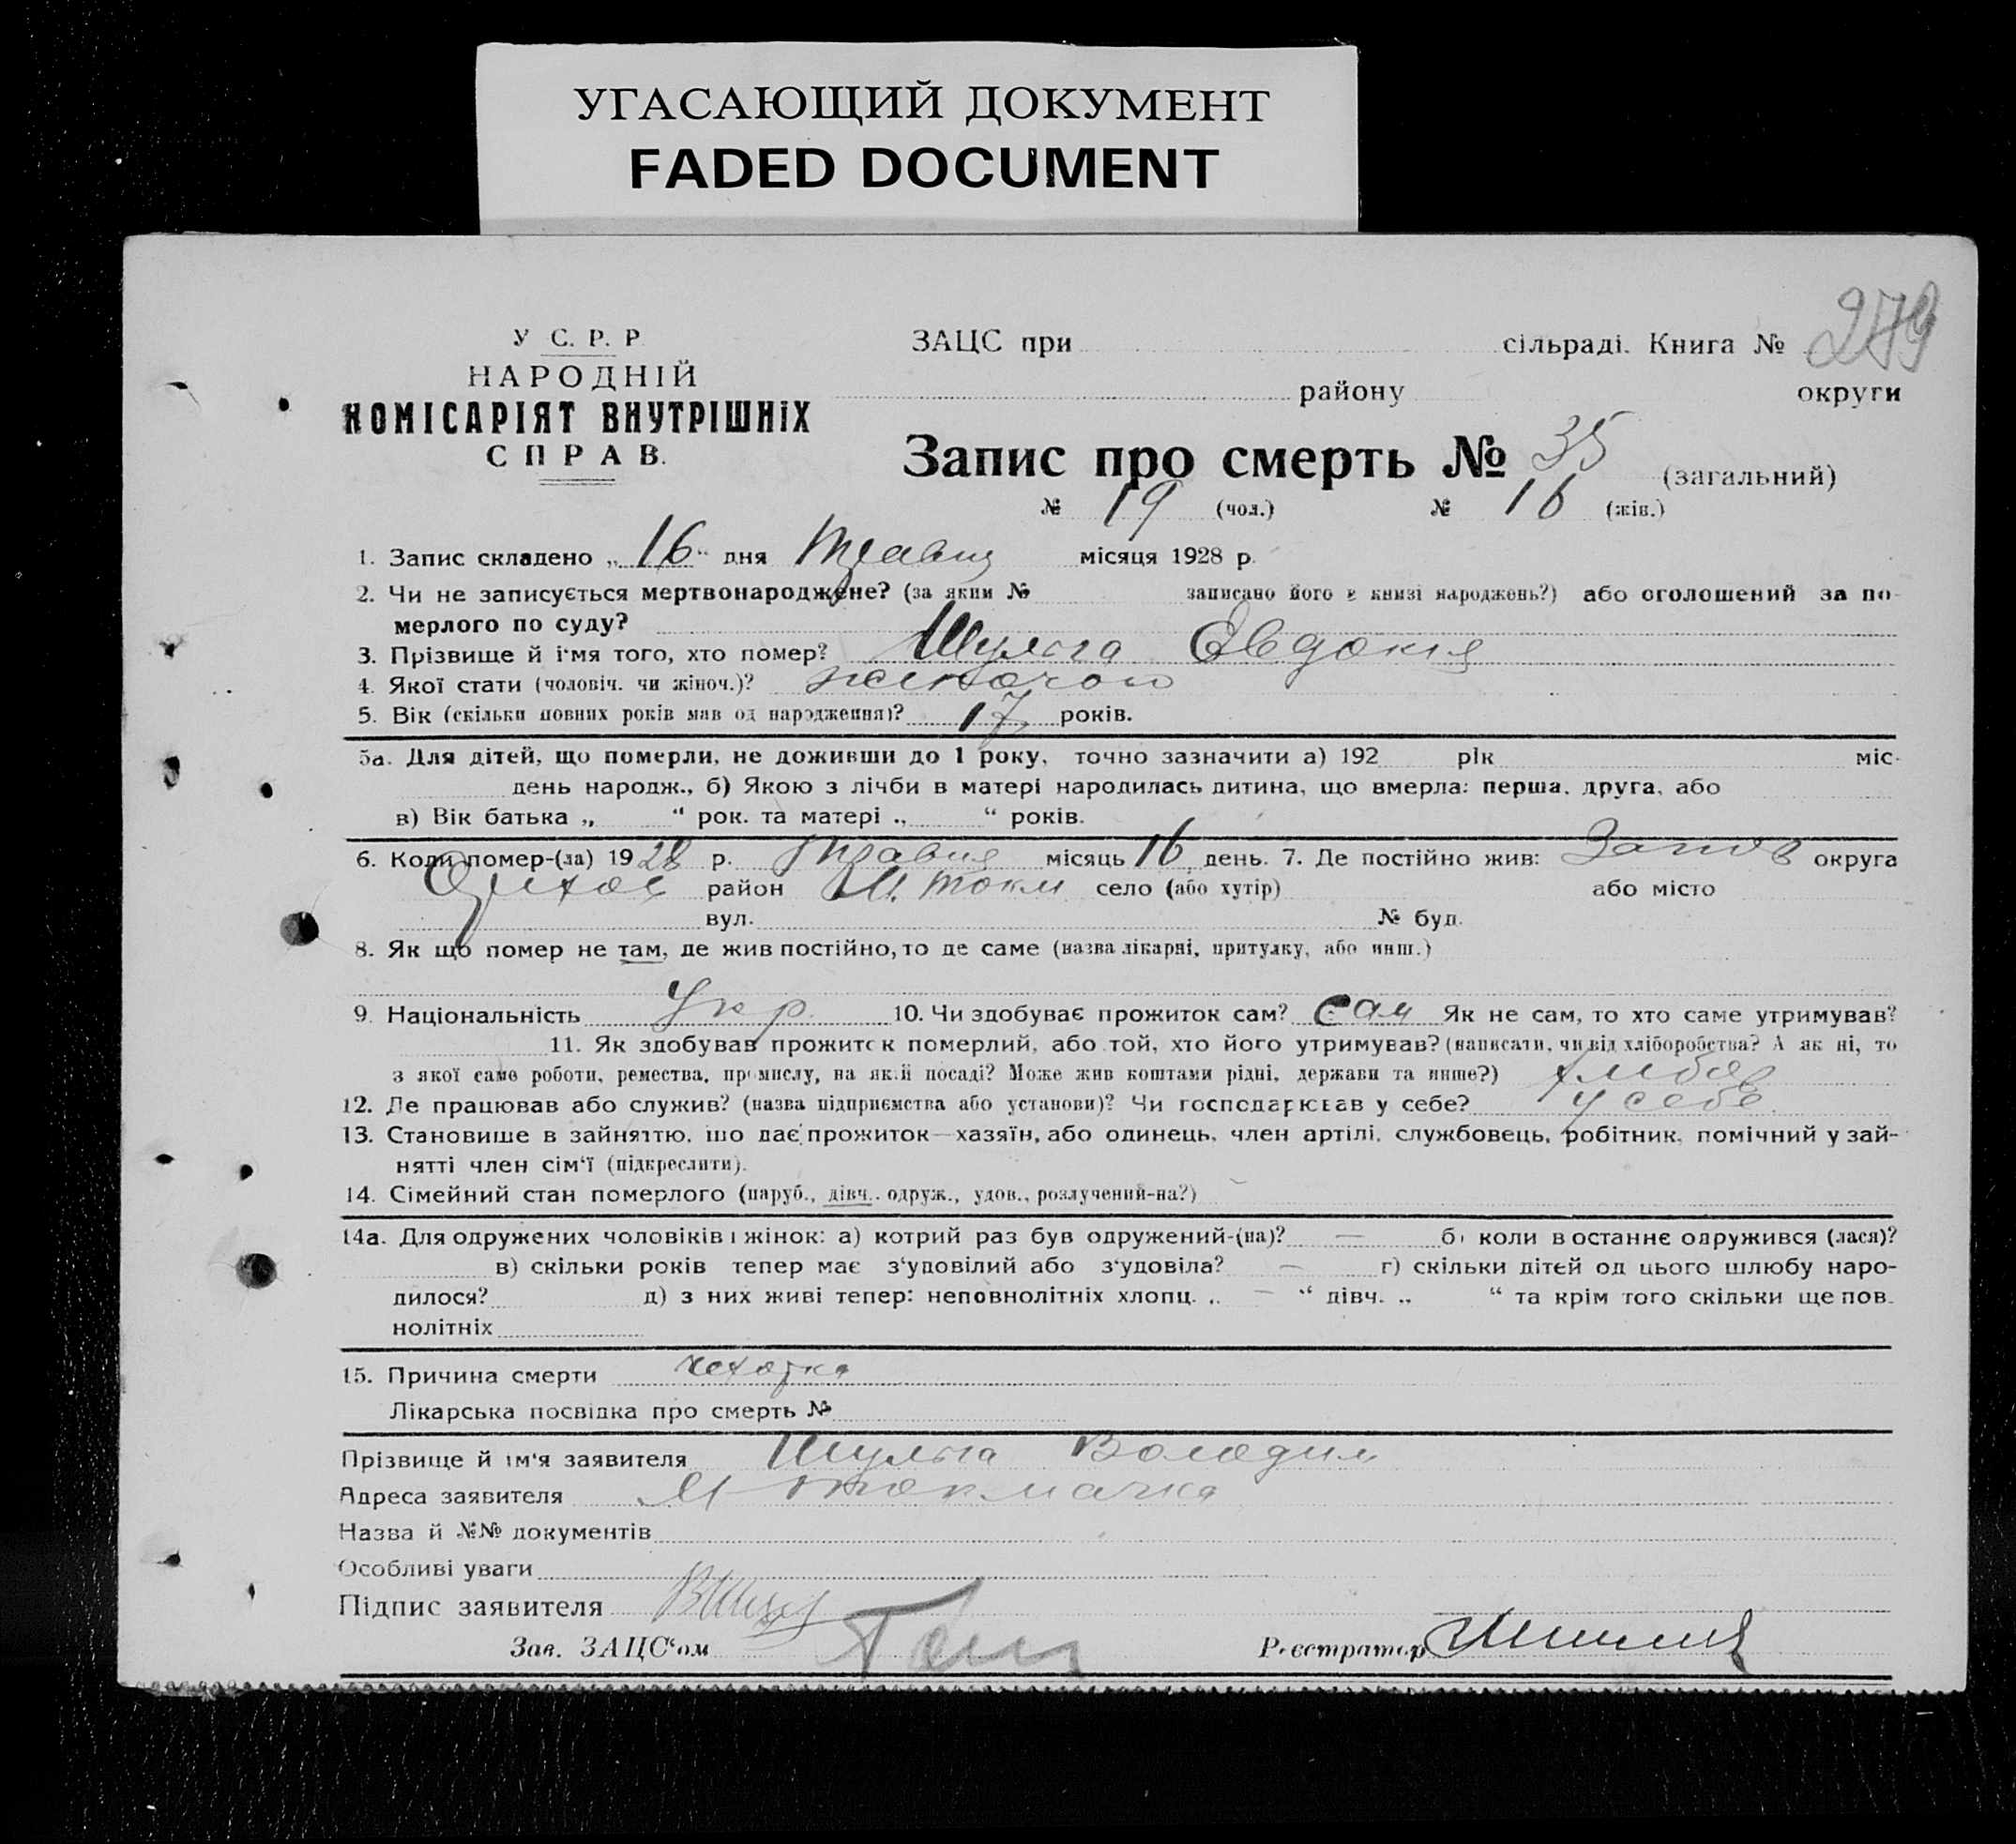 УГАСАЮЩИЙ ДОКУМЕНТ
FADED DOCUMENT
У С. Р. Р
НАРОДНІЙ
КОМІСАРІЯТ ВНУТРІШНІХ
СПРАВ.
279
ЗАЦС при сільраді. Книга №
району округи
Запис про смерть № 35 (загальний)
№ 19 (чол.) № 16 (жін.)
1. Запис складено „16“ дня Травня місяця 1928 р.
2. Чи не записується мертвонароджене? (за яким № записано його в книзі народжень?) або оголошений за по-
мерлого по суду?
3. Прізвище й і'мя того, хто помер? Шульга Евдокія
4. Якої стати (чоловіч. чи жіноч.)? жіночої
5. Вік (скільки повних років мав од народження)? 17 років.
5а. Для дітей, що померли, не доживши до 1 року, точно зазначити а) 192 рік міс-
день народж., б) Якою з лічби в матері народилась дитина, що вмерла: перша, друга, або
в) Вік батька „ “ рок. та матері „ “ років.
6. Коли помер-(ла) 1928 р. Травня місяць 16 день. 7. Де постійно жив: Запов округа
Оріхов район М. Токм село (або хутір) або місто
вул. № буд.
8. Як що помер не там, де жив постійно, то де саме (назва лікарні, притулку, або инш.)
9. Національність Укр. 10. Чи здобуває прожиток сам? Сам Як не сам, то хто саме утримував?
11. Як здобував прожиток померлий, або той, хто його утримував? (написати, чи від хліборобства? А як ні, то
з якої саме роботи, ремества, промислу, на якій посаді? Може жив коштами рідні, держави та инше?)
12. Де працював або служив? (назва підприємства або установи)? Чи господарював у себе? у себе
13. Становише в зайняттю, що дає прожиток—хазяїн, або одинець, член артілі, службовець, робітник, помічний у зай-
нятті член сім'ї (підкреслити).
14. Сімейний стан померлого (паруб., дівч., одруж., удов., розлучений-на?)
14а. Для одружених чоловіків і жінок: а) котрий раз був одружений-(на)? — б) коли в останнє одружився (лася)?
в) скільки років тепер має з'удовілий або з'удовіла? — г) скільки дітей од цього шлюбу наро-
дилося? д) з них живі тепер: неповнолітніх хлопц. „ — “ дівч. „ “ та крім того скільки ще пов-
нолітніх
15. Причина смерти чехотка
Лікарська посвідка про смерть №
Прізвище й ім'я заявителя Шульга Володим
Адреса заявителя М Токмачка
Назва й №№ документів
Особливі уваги
Підпис заявителя
Зав. ЗАЦС'ом Реєстратор